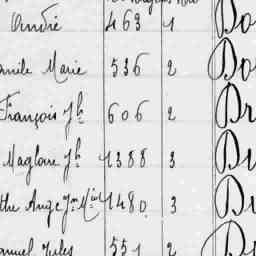 André 463 1 Do
Marie 536 2 Do
François Jh 606 2 Dr
Maglone Jh 1388 3 Du
the Ange Jn Mie 1480 3 Du
Jules 551 2 D